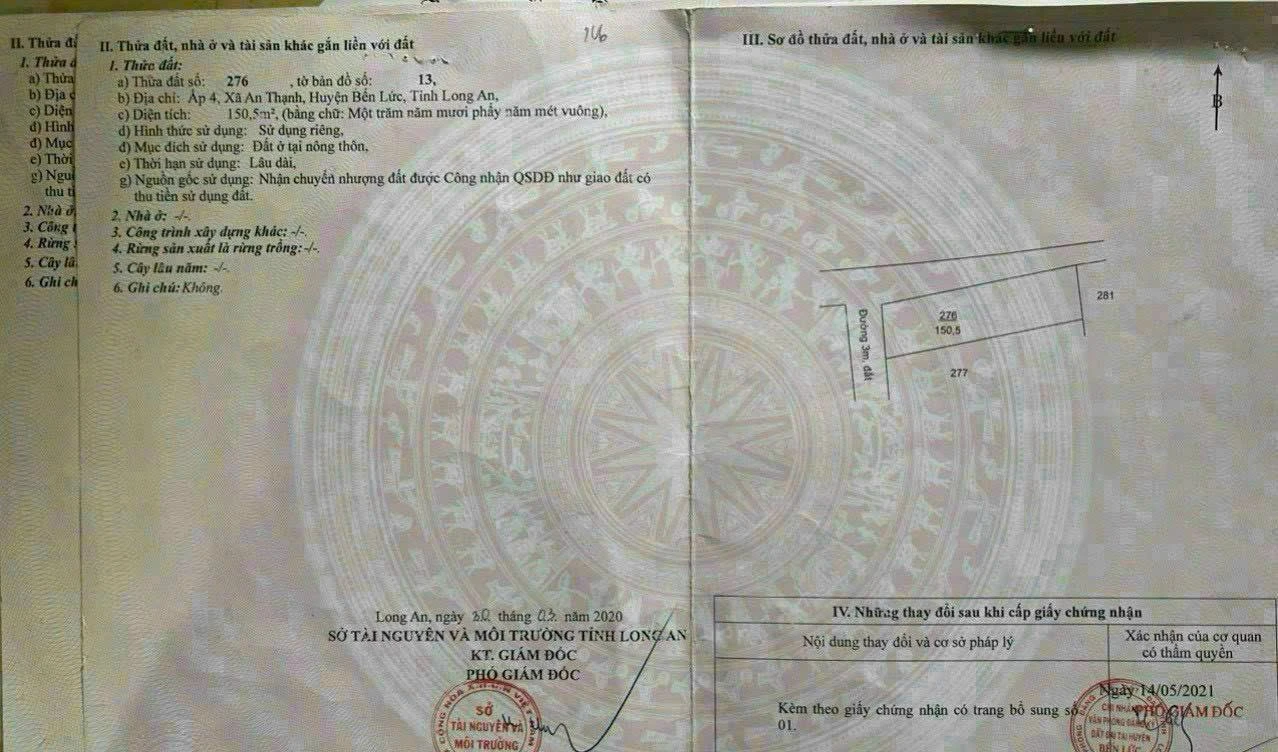 II. Thửa đấ
1. Thửa đ
a) Thửa
b) Địa c
c) Diện
d) Hình
đ) Mục
e) Thời
g) Nguồ
thu ti
2. Nhà ở:
3. Công t
4. Rừng s
5. Cây lâ
6. Ghi ch
166
II. Thửa đất, nhà ở và tài sản khác gắn liền với đất
1. Thửa đất:
a) Thửa đất số: 276 , tờ bản đồ số: 13,
b) Địa chỉ: Ấp 4, Xã An Thạnh, Huyện Bến Lức, Tỉnh Long An,
c) Diện tích: 150,5m², (bằng chữ: Một trăm năm mươi phẩy năm mét vuông),
d) Hình thức sử dụng: Sử dụng riêng,
đ) Mục đích sử dụng: Đất ở tại nông thôn,
e) Thời hạn sử dụng: Lâu dài,
g) Nguồn gốc sử dụng: Nhận chuyển nhượng đất được Công nhận QSDĐ như giao đất có
thu tiền sử dụng đất.
2. Nhà ở: -/-.
3. Công trình xây dựng khác: -/-.
4. Rừng sản xuất là rừng trồng: -/-.
5. Cây lâu năm: -/-.
6. Ghi chú: Không.
Long An, ngày 20 tháng 03 năm 2020
SỞ TÀI NGUYÊN VÀ MÔI TRƯỜNG TỈNH LONG AN
KT. GIÁM ĐỐC
PHÓ GIÁM ĐỐC
SỞ
TÀI NGUYÊN VÀ
MÔI TRƯỜNG
III. Sơ đồ thửa đất, nhà ở và tài sản khác gắn liền với đất
B
281
276
150,5
277
Đường 3m, đất
IV. Những thay đổi sau khi cấp giấy chứng nhận
Nội dung thay đổi và cơ sở pháp lý
Xác nhận của cơ quan
có thẩm quyền
Kèm theo giấy chứng nhận có trang bổ sung số
01.
Ngày 14/05/2021
PHÓ GIÁM ĐỐC
CHI NHÁNH
VĂN PHÒNG ĐĂNG KÝ
ĐẤT ĐAI TẠI HUYỆN
BẾN LỨC